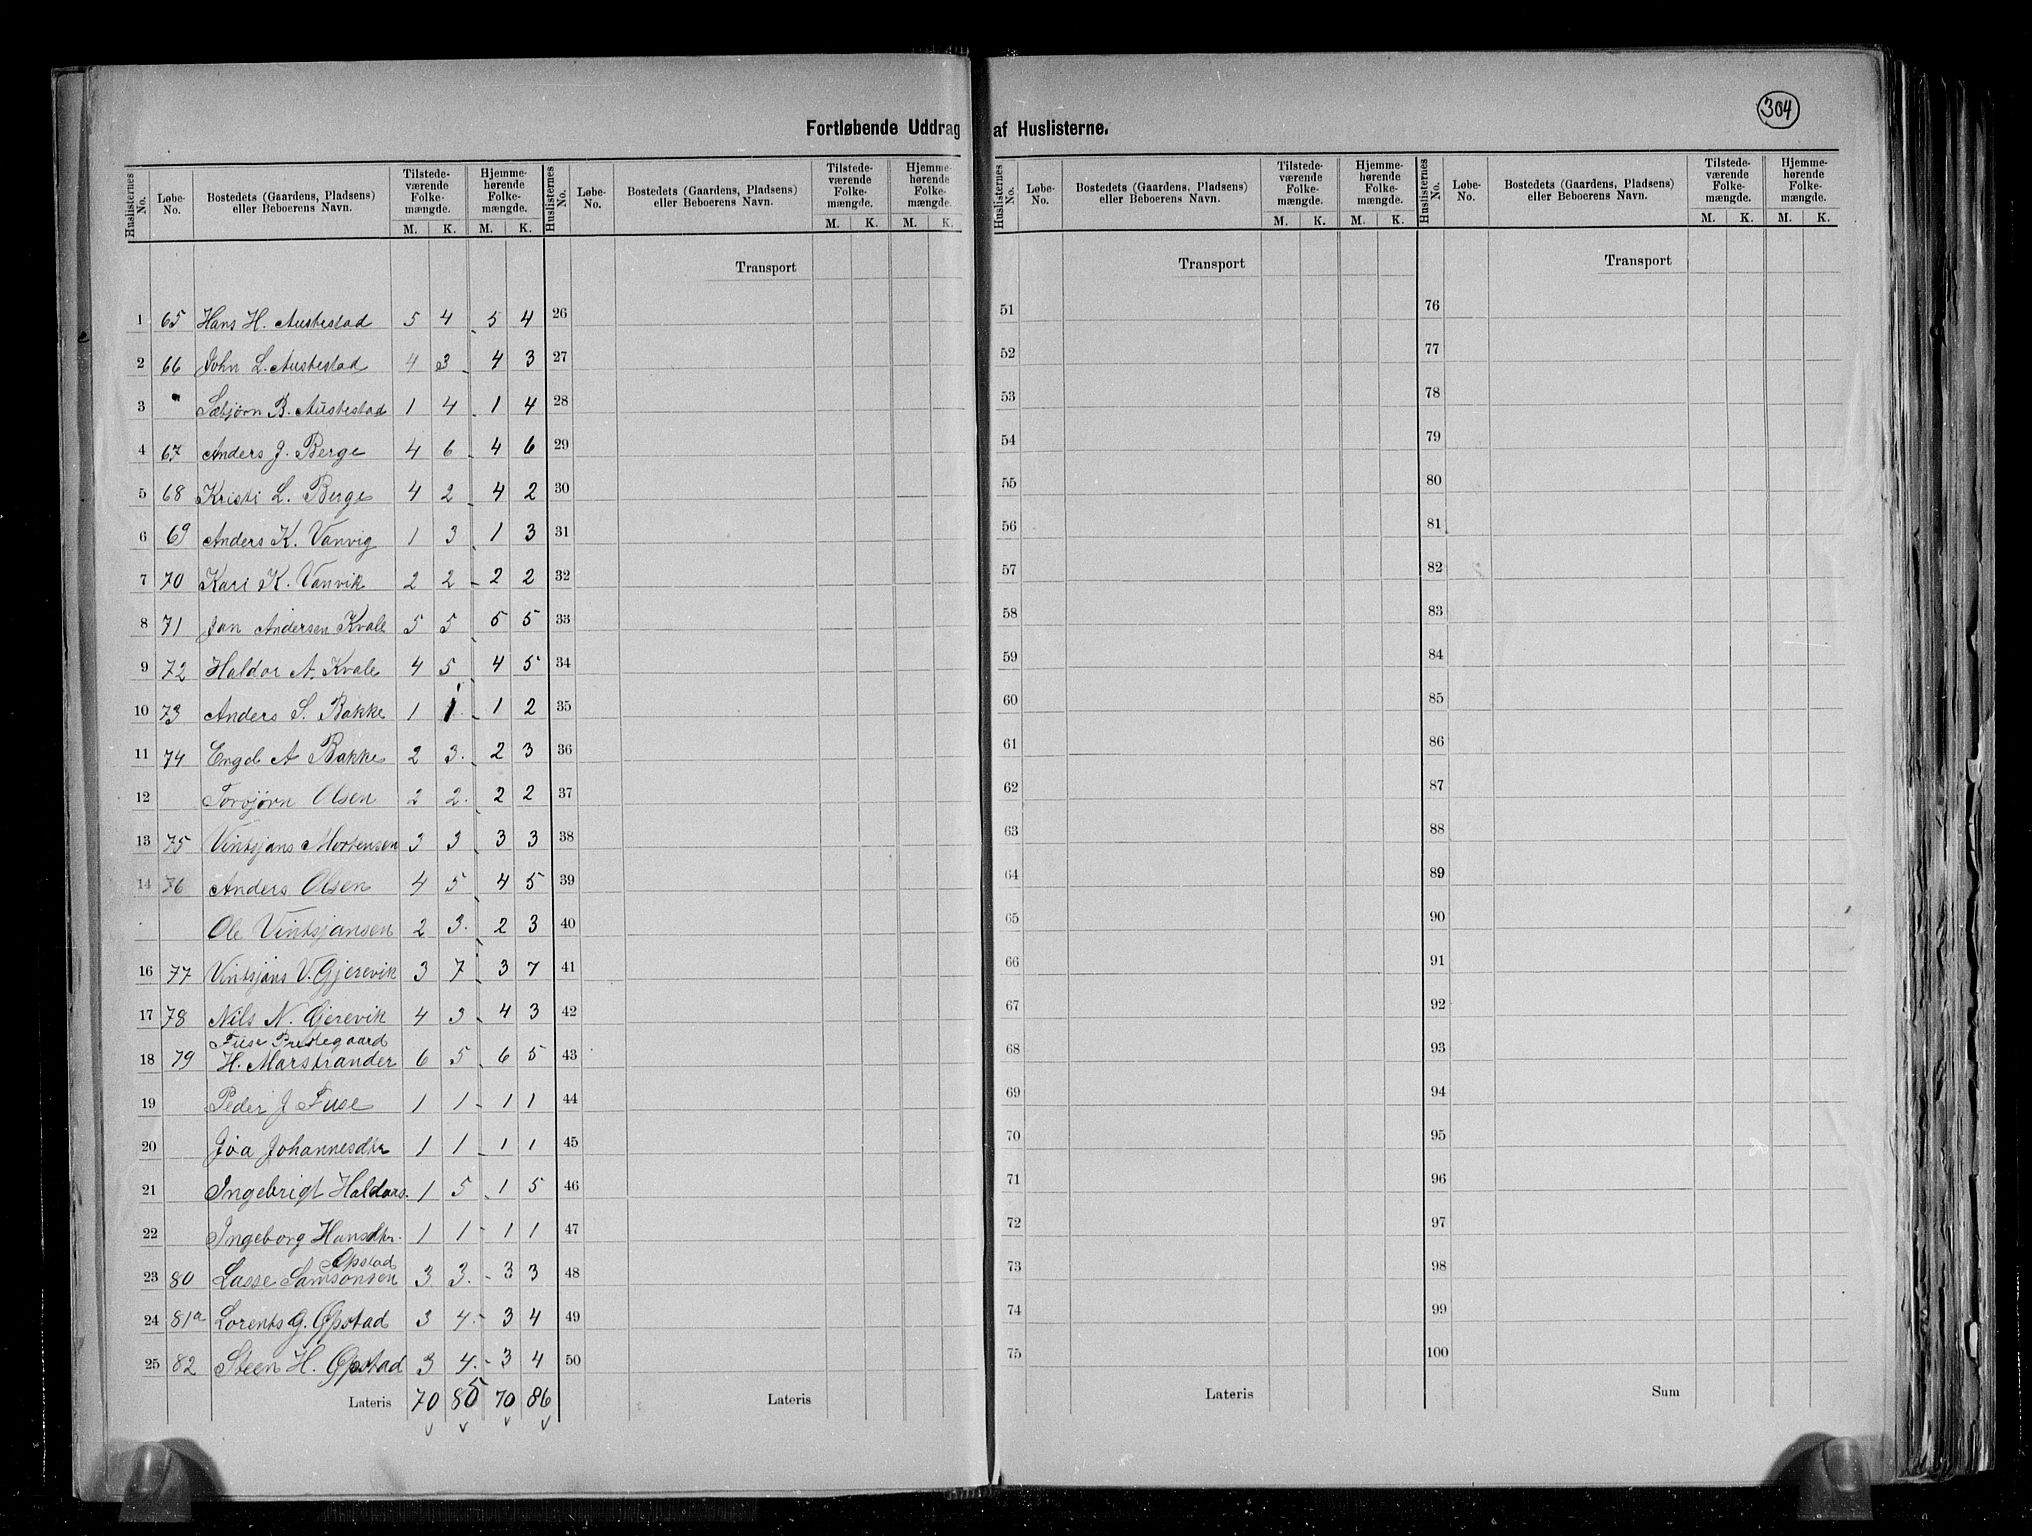 304
Fortløbende Uddrag af Huslisterne.
Huslisternes No. Løbe-No. Bostedets (Gaardens, Pladsens) eller Beboerens Navn. Tilstedeværende Folkemængde. M. K. Hjemmehørende Folkemængde. M. K.
Huslisternes No. Løbe-No. Bostedets (Gaardens, Pladsens) eller Beboerens Navn. Tilstedeværende Folkemængde. M. K. Hjemmehørende Folkemængde. M. K.
Huslisternes No. Løbe-No. Bostedets (Gaardens, Pladsens) eller Beboerens Navn. Tilstedeværende Folkemængde. M. K. Hjemmehørende Folkemængde. M. K.
Huslisternes No. Løbe-No. Bostedets (Gaardens, Pladsens) eller Beboerens Navn. Tilstedeværende Folkemængde. M. K. Hjemmehørende Folkemængde. M. K.
Transport Transport Transport
1 65 Hans H. Austestad 5 4 5 4 26 51 76
2 66 John L. Austestad 4 3 4 3 27 52 77
3 " Sebjörn B. Austestad 1 4 1 4 28 53 78
4 67 Anders J. Berge 4 6 4 6 29 54 79
5 68 Kristi L. Berge 4 2 4 2 30 55 80
6 69 Anders K. Vanvig 1 3 1 3 31 56 81
7 70 Kari K. Vanvik 2 2 2 2 32 57 82
8 71 Jan Andersen Kvale 5 5 5 5 33 58 83
9 72 Haldor A. Kvale 4 5 4 5 34 59 84
10 73 Anders S. Bakke 1 1 1 2 35 60 85
11 74 Engel A Bakke 2 3 2 3 36 61 86
12 Torbjörn Olsen 2 2 2 2 37 62 87
13 75 Vintsjans Mortensen 3 3 3 3 38 63 88
14 76 Anders Olsen 4 5 4 5 39 64 89
Ole Vintsjansen 2 3 2 3 40 65 90
16 77 Vintsjans V. Gjerevik 3 7 3 7 41 66 91
17 78 Nils N. Gjerevik 4 3 4 3 42 67 92
Fuse Prestegaard
18 79 H. Marstrander 6 5 6 5 43 68 93
19 Peder J Fuse 1 1 1 1 44 69 94
20 Johannesdtr 1 1 1 1 45 70 95
21 Ingebrigt Haldors. 1 5 1 5 46 71 96
22 Ingeborg Hansdtr. 1 1 1 1 47 72 97
Opstad
23 80 Lasse Samsonsen 3 3 3 3 48 73 98
24 81a Lorents G. Opstad 3 4 3 4 49 74 99
25 82 Steen H. Opstad 3 4 3 4 50 75 100
Lateris 70 85 70 86 Lateris Lateris Sum